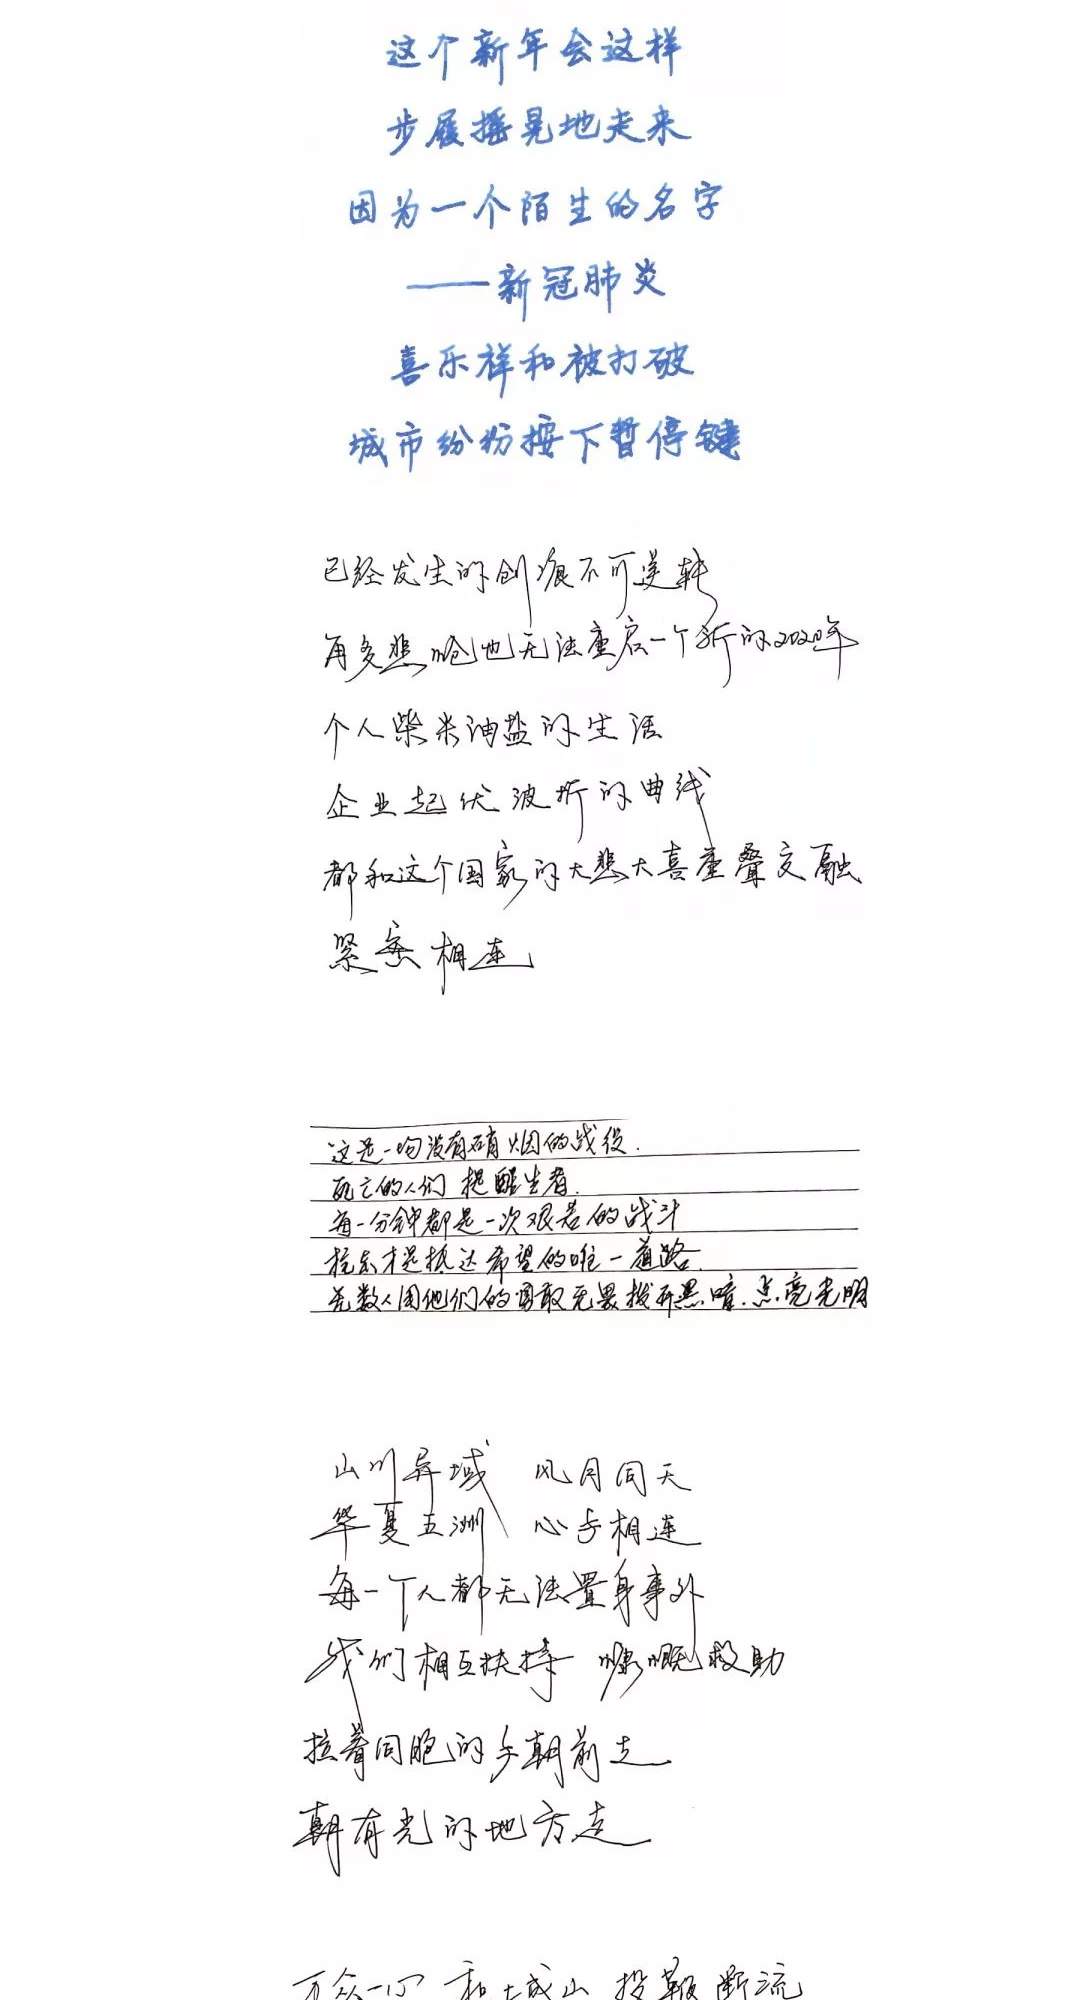 这个新年会这样
步履摇晃地走来
因为一个陌生的名字
——新冠肺炎
喜乐祥和被打破
城市纷纷按下暂停键
已经发生的创痕不可逆转
再多悲呛也无法重启一个新的2020年
个人柴米油盐的生活
企业起伏波折的曲线
都和这个国家的大悲大喜重叠交融
紧密相连
这是一场没有硝烟的战役.
死亡的人们 提醒生者.
每一分钟都是一次艰苦的战斗
挂东才是抵达希望的唯一道路.
无数人用他们的勇敢无畏拨开黑暗.点亮光明
山川异域 风月同天
华夏五洲 心手相连
每一个人都无法置身事外
我们相互扶持 慷慨救助
拉着同胞的手朝前走
朝有光的地方走
万众一心 和城山 投鞭断流